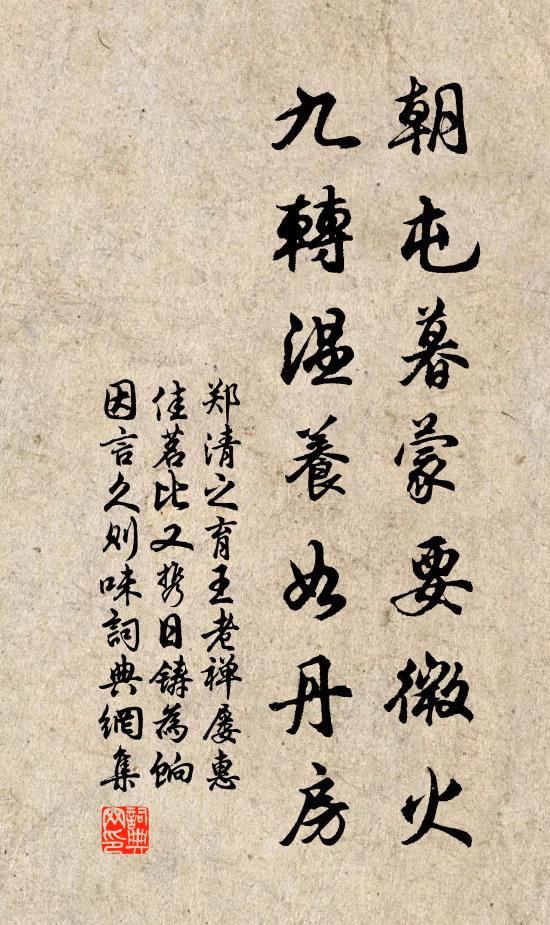 朝屯暮蒙要微火
九轉温養如丹房
郑清之育王老禅屡惠
佳茗比又携日鑄為餉
因言久则味詞典網集
詞典网印